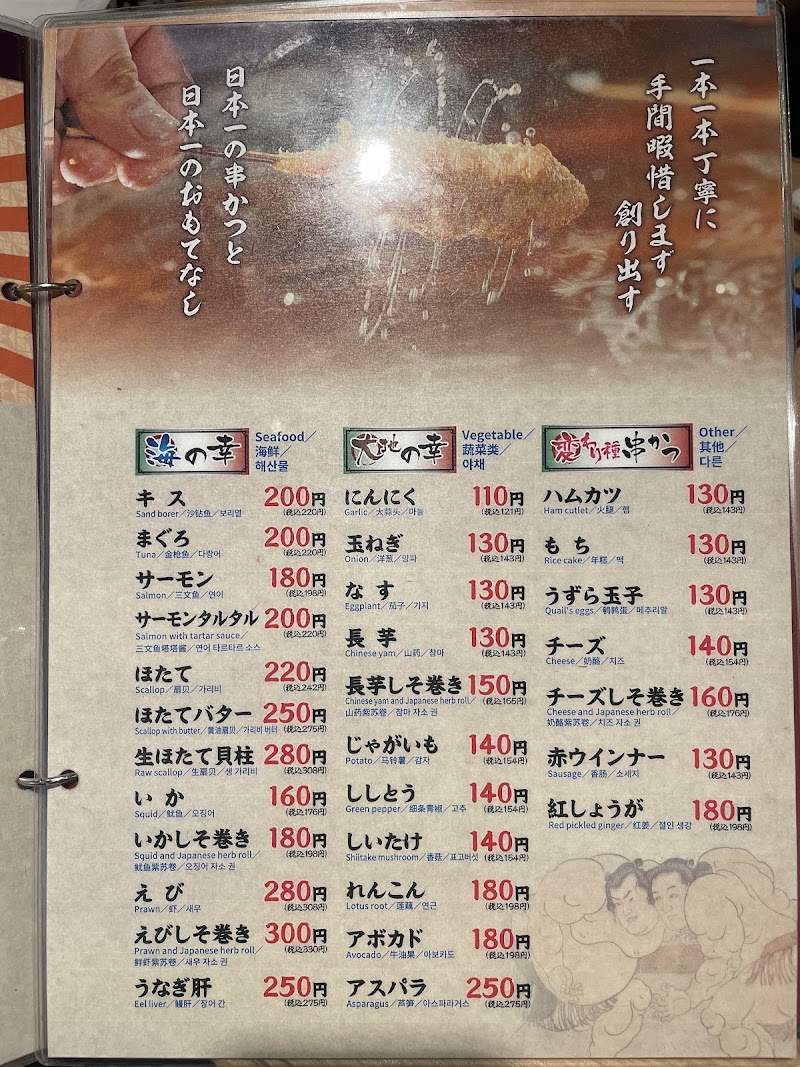 一本一本丁寧に
手間暇惜しまず
創り出す
日本一の串かつと
日本一のおもてなし
海の幸
Seafood／
海鲜／
해산물
キス 200円
Sand borer／沙钻鱼／보리멸 (税込220円)
まぐろ 200円
Tuna／金枪鱼／다랑어 (税込220円)
サーモン 180円
Salmon／三文鱼／연어 (税込198円)
サーモンタルタル 200円
(税込220円)
Salmon with tartar sauce／
三文鱼塔塔酱／연어 타르타르 소스
ほたて 220円
Scallop／扇贝／가리비 (税込242円)
ほたてバター 250円
Scallop with butter／黄油扇贝／가리비 버터 (税込275円)
生ほたて貝柱 280円
Raw scallop／生扇贝／생 가리비 (税込308円)
いか 160円
Squid／鱿鱼／오징어 (税込176円)
いかしそ巻き 180円
Squid and Japanese herb roll／ (税込198円)
鱿鱼紫苏卷／오징어 자소 권
えび 280円
Prawn／虾／새우 (税込308円)
えびしそ巻き 300円
Prawn and Japanese herb roll／ (税込330円)
鲜虾紫苏卷／새우 자소 권
うなぎ肝 250円
Eel liver／鳗肝／장어 간 (税込275円)
大地の幸
Vegetable／
蔬菜类／
야채
にんにく 110円
Garlic／大蒜头／마늘 (税込121円)
玉ねぎ 130円
Onion／洋葱／양파 (税込143円)
なす 130円
Eggplant／茄子／가지 (税込143円)
長芋 130円
Chinese yam／山药／참마 (税込143円)
長芋しそ巻き 150円
Chinese yam and Japanese herb roll／ (税込165円)
山药紫苏卷／참마 자소 권
じゃがいも 140円
Potato／马铃薯／감자 (税込154円)
ししとう 140円
Green pepper／细条青椒／고추 (税込154円)
しいたけ 140円
Shiitake mushroom／香菇／표고버섯 (税込154円)
れんこん 180円
Lotus root／莲藕／연근 (税込198円)
アボカド 180円
Avocado／牛油果／아보카도 (税込198円)
アスパラ 250円
Asparagus／芦笋／아스파라거스 (税込275円)
変わり種串かつ
Other／
其他／
다른
ハムカツ 130円
Ham cutlet／火腿／햄 (税込143円)
もち 130円
Rice cake／年糕／떡 (税込143円)
うずら玉子 130円
Quail's eggs／鹌鹑蛋／메추리알 (税込143円)
チーズ 140円
Cheese／奶酪／치즈 (税込154円)
チーズしそ巻き 160円
Cheese and Japanese herb roll／ (税込176円)
奶酪紫苏卷／치즈 자소 권
赤ウインナー 130円
Sausage／香肠／소세지 (税込143円)
紅しょうが 180円
Red pickled ginger／红姜／절인 생강 (税込198円)